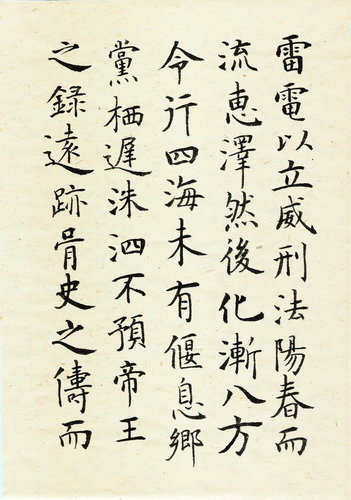 雷電以立威刑法陽春而
流恵澤然後化漸八方
令行四海未有偃息鄉
黨栖遲洙泗不預帝王
之錄遠跡胥史之儔而